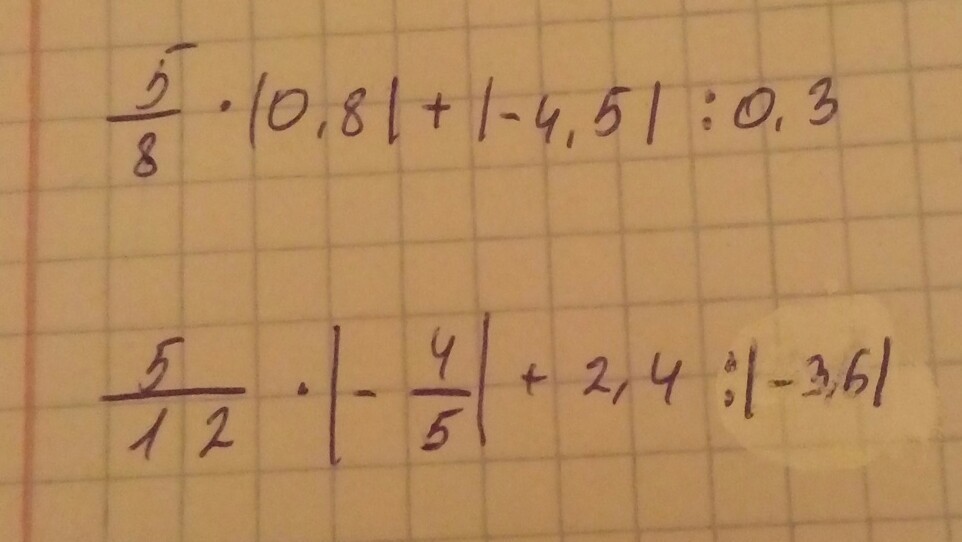 5/8 · |0,8| + |-4,5| : 0,3
5/12 · |-4/5| + 2,4 : |-3,6|